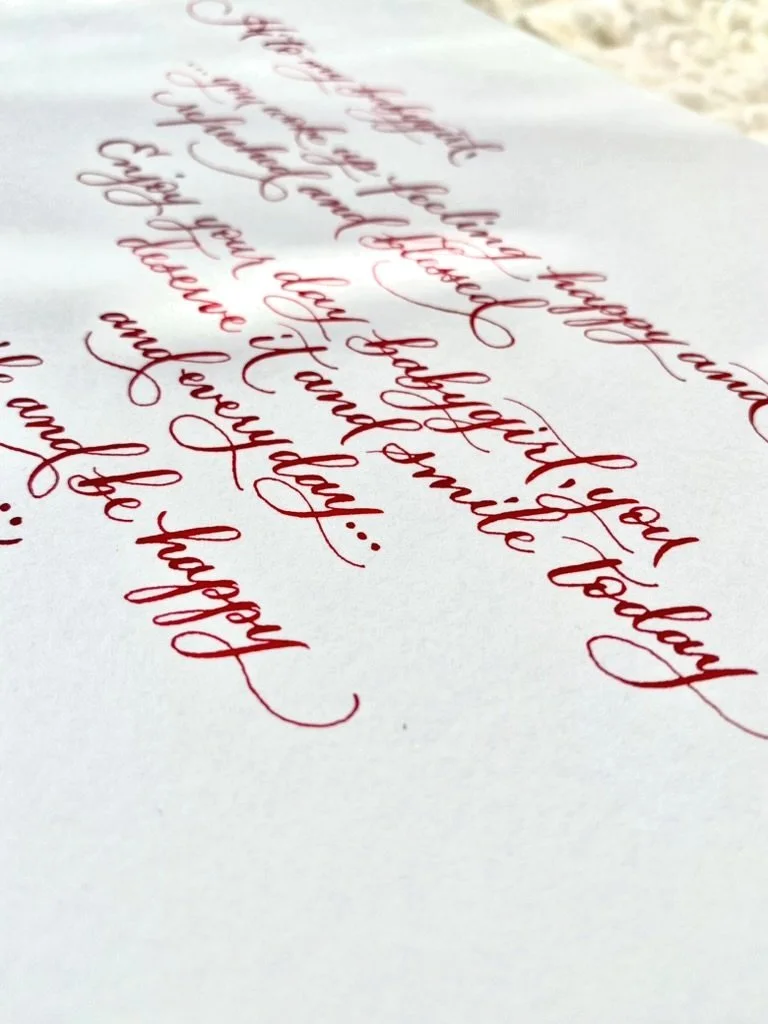 to my babygirl,
...you woke up feeling happy and
refreshed and blessed
Enjoy your day babygirl, you
deserve it and smile today
and everyday...
and be happy